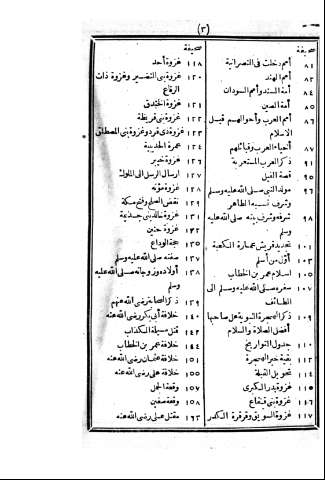 (٣)
صحيفة
٨١ أمم دخلت فى النصرانية
٨٣ أمم الهند
٨٤ أمة السند وأمم السودان
٨٥ أمة الصين
٨٦ أمم العرب وأحوالهم قبل
الاسلام
٨٧ أحياء العرب وقبائلهم
٩١ ذكر العرب المستعربة
٩٥ قصة الفيل
٩٦ مولد النبى صلى الله عليه وسلم
وشرف نسبه الطاهر
٩٨ شرفه وشرف بيته صلى الله عليه
وسلم
١٠١ تجديد قريش عمارة الكعبة
١٠٣ أول من أسلم
١٠٥ اسلام عمر بن الخطاب
١٠٧ سفره صلى الله عليه وسلم الى
الطائف
١٠٩ ذكر الهجرة النبوية على صاحبها
أفضل الصلاة والسلام
١١٠ جدول التواريخ
١١٢ بقية خبر الهجرة
١١٤ تحويل القبلة
١١٤ غزوة بدر الكبرى
١١٦ غزوة بنى قينقاع
١١٧ غزوة السويق وقرقرة الكدر
صحيفة
١١٨ غزوة أحد
١٢٠ غزوة بنى النضير وغزوة ذات
الرقاع
١٢١ غزوة الخندق
١٢٢ غزوة بنى قريظة
١٢٣ غزوة ذى قرد وغزوة بنى المصطلق
١٢٤ عمرة الحديبية
١٢٦ غزوة خيبر
١٢٧ ارسال الرسل الى الملوك
١٢٨ غزوة مؤتة
١٢٩ نقض الصلح وفتح مكة
١٣١ غزوة خالد بنى جذيمة
١٣٢ غزوة حنين
١٣٥ حجة الوداع
١٣٧ صفته صلى الله عليه وسلم
١٣٨ أولاده وزوجاته صلى الله عليه
وسلم
١٣٩ ذكر الصحابة رضى الله عنهم
١٤٠ خلافة أبى بكر رضى الله عنه
١٤٢ قتل مسيلمة الكذاب
١٤٤ خلافة عمر بن الخطاب
١٥١ خلافة عثمان رضى الله عنه
١٥٥ خلافة على رضى الله عنه
١٥٧ وقعة الجمل
١٥٨ وقعة صفين
١٦٣ مقتل على رضى الله عنه